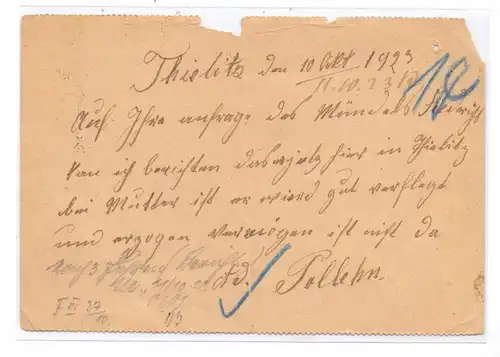 Thielitz den 10 Okt 1923
11.10.23
18
Auf Ihre anfrage des Mündels
kan ich berichten das er jetz hier in Thielitz
bei Mutter ist er wierd gut verflegt
und erzogen vermögen ist nist da
nach 3
Tollehn.
F VI 27/10.